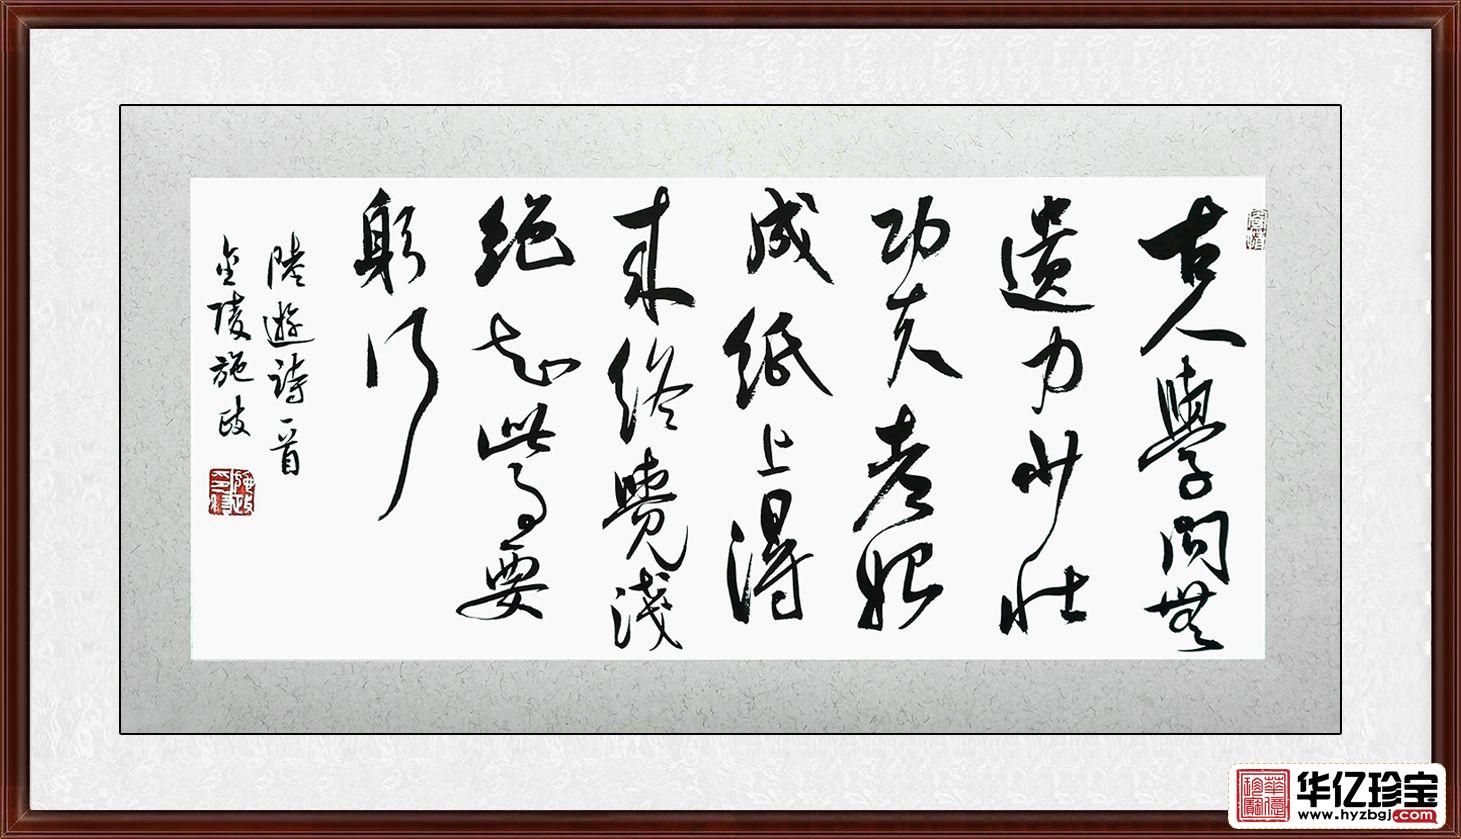 古人學問無
遺力少壯
功夫老始
成紙上得
来終覺淺
絶知此事要
躬行
陸遊詩一首
金陵施政
华亿珍宝
www.hyzbgj.com